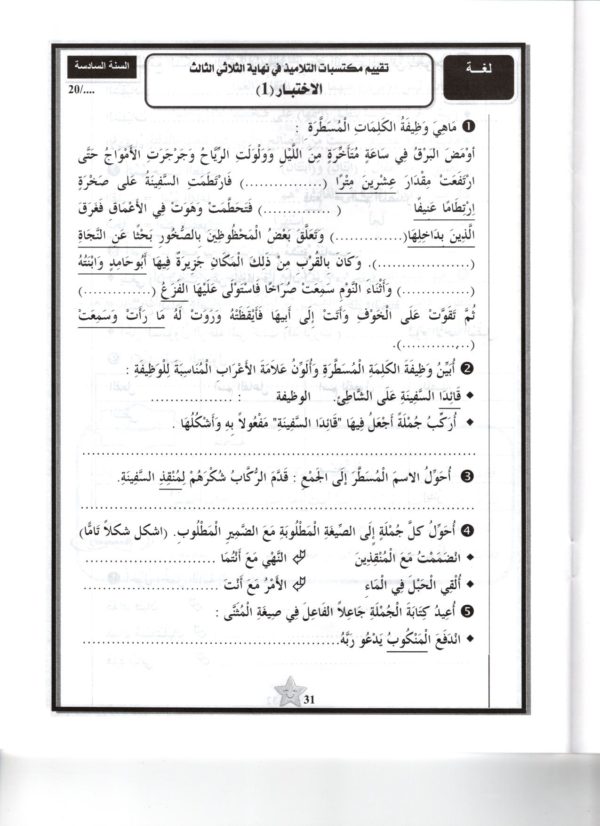 لغـــة
تقييم مكتسبات التلاميذ في نهاية الثلاثي الثالث
الاختبـار (1)
السنة السادسة
20/....
❶ مَاهِيَ وَظِيفَةُ الكَلِمَاتِ الْمُسَطَّرَةِ :
أوْمَضَ البَرْقُ فِي سَاعَةٍ مُتَأَخِّرَةٍ مِنَ اللَّيْلِ وَوَلْوَلَتِ الرِّيَاحُ وَجَرْجَرَتِ الأَمْوَاجُ حَتَّى
ارْتَفَعَتْ مِقْدَارَ عِشْرِينَ مِتْرًا (.............) فَارْتَطَمَتِ السَّفِينَةُ عَلَى صَخْرَةٍ
اِرْتِطَامًا عَنِيفًا ( .............) فَتَحَطَّمَتْ وَهَوَتْ فِي الأَعْمَاقِ فَغَرَقَ
الَّذِينَ بِدَاخِلِهَا(.............) وَتَعَلَّقَ بَعْضُ الْمَحْظُوظِينَ بِالصُّخُورِ بَحْثًا عَنِ النَّجَاةِ
(...............). وَكَانَ بِالقُرْبِ مِنْ ذَلِكَ الْمَكَانِ جَزِيرَةٌ فِيهَا أَبُوحَامِدٍ وَابْنَتُهُ
(...............) وَأَثْنَاءَ النَّوْمِ سَمِعَتْ صُرَاخًا فَاسْتَوْلَى عَلَيْهَا الفَزَعُ (.............)
ثُمَّ تَقَوَّتْ عَلَى الْخَوْفِ وَأَتَتْ إِلَى أَبِيهَا فَأَيْقَظَتْهُ وَرَوَتْ لَهُ مَا رَأَتْ وَسَمِعَتْ
(.............).
❷ أُبَيِّنُ وَظِيفَةَ الكَلِمَةِ الْمُسَطَّرَةِ وَأُلَوِّنُ عَلاَمَةَ الأَعْرَابِ الْمُنَاسِبَةَ لِلْوَظِيفَةِ :
قَائِدَا السَّفِينَةِ عَلَى الشَّاطِئِ. الوظيفة : ................
◆ أُرَكِّبُ جُمْلَةً أَجْعَلُ فِيهَا "قَائِدَا السَّفِينَةِ" مَفْعُولاً بِهِ وَأَشْكُلُهَا .
................................................................
❸ أُحَوِّلُ الاسمَ الْمُسَطَّرَ إلَى الجَمْعِ : قَدَّمَ الرُّكَّابُ شُكْرَهُمْ لِمُنْقِذِ السَّفِينَةِ.
................................................................
❹ أُحَوِّلُ كلَّ جُمْلَةٍ إلَى الصِّيغَةِ الْمَطْلُوبَةِ مَعَ الضَّمِيرِ الْمَطْلُوبِ. (اشكل شكلاً تَامًّا)
◆ انْضَمَمْتُ مَعَ الْمُنْقِذِينَ النَّهْي مَعَ أَنْتُمَا ........................
◆ أُلْقِي الْحَبْلَ فِي الْمَاءِ الأَمْرُ مَعَ أَنْتَ ........................
❺ أُعِيدُ كِتَابَةَ الْجُمْلَةِ جَاعِلاً الفَاعِلَ فِي صِيغَةِ الْمُثَنَّى :
◆ انْدَفَعَ الْمَنْكُوبُ يَدْعُو رَبَّهُ........................................
31